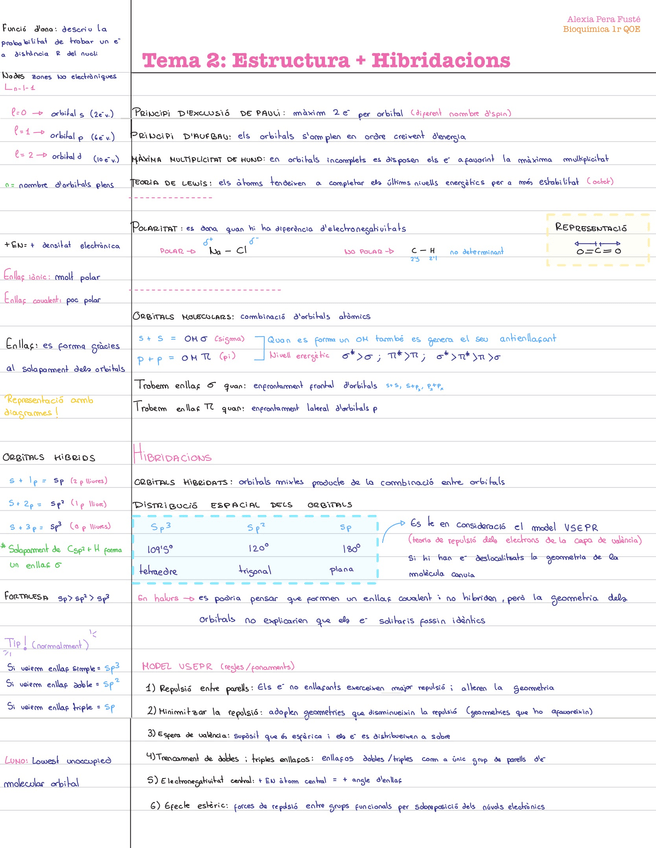 Alexia Pera Fusté
Bioquímica 1r QOE
Tema 2: Estructura + Hibridacions
Funció d'ona: descriu la
probabilitat de trobar un e⁻
a distància R del nucli
Nodes zones no electròniques
L n-l-1
l=0 → orbital s (2e⁻v.)
l=1 → orbital p (6e⁻v.)
l=2 → orbital d (10e⁻v.)
n= nombre d'orbitals plens
+EN=+ densitat electrònica
Enllaç iònic: molt polar
Enllaç covalent: poc polar
Enllaç: es forma gràcies
al solapament dels orbitals
Representació amb
diagrames!
ORBITALS HÍBRIDS
s + 1p = sp (2 p lliures)
s + 2p = sp² (1 p lliure)
s + 3p = sp³ (0 p lliures)
* Solapament de Csp³ + H forma
un enllaç σ
FORTALESA sp>sp²>sp³
Tip! (normalment)
Si veiem enllaç simple = sp³
Si veiem enllaç doble = sp²
Si veiem enllaç triple = sp
LUMO: Lowest unoccupied
molecular orbital
PRINCIPI D'EXCLUSIÓ DE PAULI: màxim 2e⁻ per orbital (diferent nombre d'spin)
PRINCIPI D'AUFBAU: els orbitals s'omplen en ordre creixent d'energia
MÀXIMA MULTIPLICITAT DE HUND: en orbitals incomplets es disposen els e⁻ afavorint la màxima multiplicitat
TEORIA DE LEWIS: els àtoms tendeixen a completar els últims nivells energètics per a més estabilitat (octet)
POLARITAT: es dona quan hi ha diferència d'electronegativitats
POLAR → δ⁺ Na - Cl δ⁻ NO POLAR → C - H no determinant
2'5 2'1
REPRESENTACIÓ
O=C=O
ORBITALS MOLECULARS: combinació d'orbitals atòmics
s + s = OM σ (sigma)
p + p = OM π (pi)
Quan es forma un OM també es genera el seu antienllaçant
Nivell energètic σ*>σ ; π*>π ; σ*>π*>π>σ
Trobem enllaç σ quan: enfrontament frontal d'orbitals s+s, s+p, p+p
Trobem enllaç π quan: enfrontament lateral d'orbitals p
HIBRIDACIONS
ORBITALS HIBRIDATS: orbitals mixtes producte de la combinació entre orbitals
DISTRIBUCIÓ ESPACIAL DELS ORBITALS
sp³ sp² sp
109'5° 120° 180°
tetraedre trigonal plana
Es té en consideració el model VSEPR
(teoria de repulsió dels electrons de la capa de valància)
Si hi han e⁻ deslocalitzats la geometria de la
molècula canvia
En halurs → es podria pensar que formen un enllaç covalent i no hibriden, però la geometria dels
orbitals no explicarien que els e⁻ solitaris fossin idèntics
MODEL VSEPR (regles/fonaments)
1) Repulsió entre parells: Els e⁻ no enllaçants exerceixen major repulsió i alteren la geometria
2) Minimitzar la repulsió: adopten geometries que disminueixin la repulsió (geometries que ho afavoreixin)
3) Esfera de valància: supòsit que és esfèrica i els e⁻ es distribueixen a sobre
4) Trencament de dobles i triples enllaços: enllaços dobles/triples com a únic grup de parells d'e⁻
5) Electronegativitat central: + EN àtom central = + angle d'enllaç
6) Efecte estèric: forces de repulsió entre grups funcionals per sobreposició dels núvols electrònics